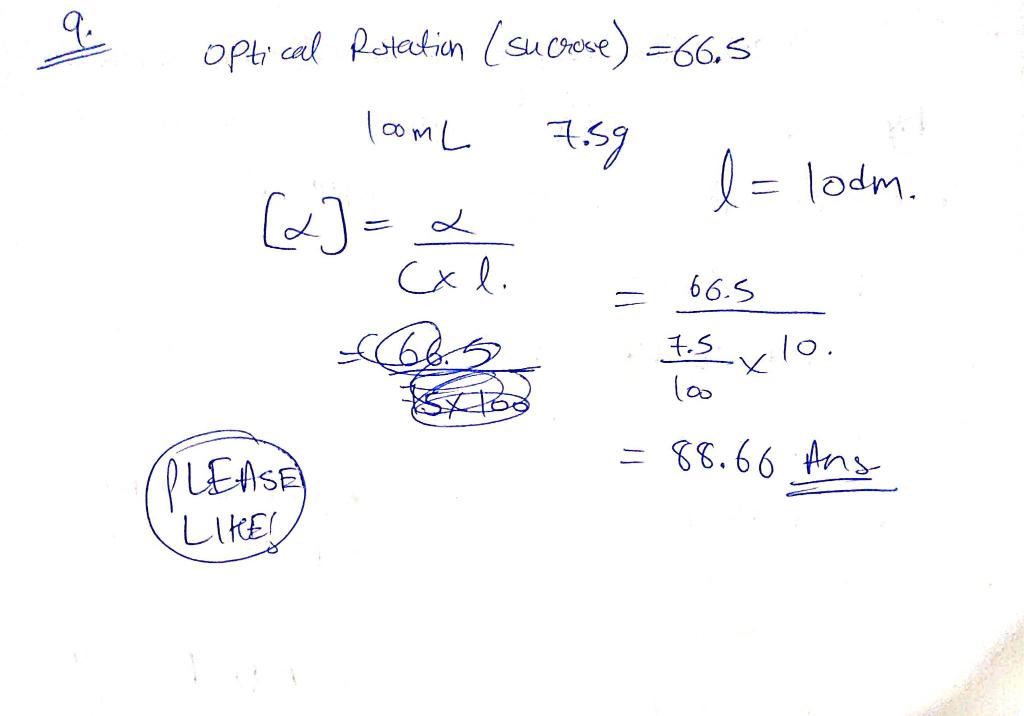 9.
Optical Rotation (sucrose) = 66.5
100mL 7.5g
l = 10dm.
[α] = α
C x l.
= 66.5
7.5 x 10.
100
= 88.66 Ans
PLEASE
LIKE!